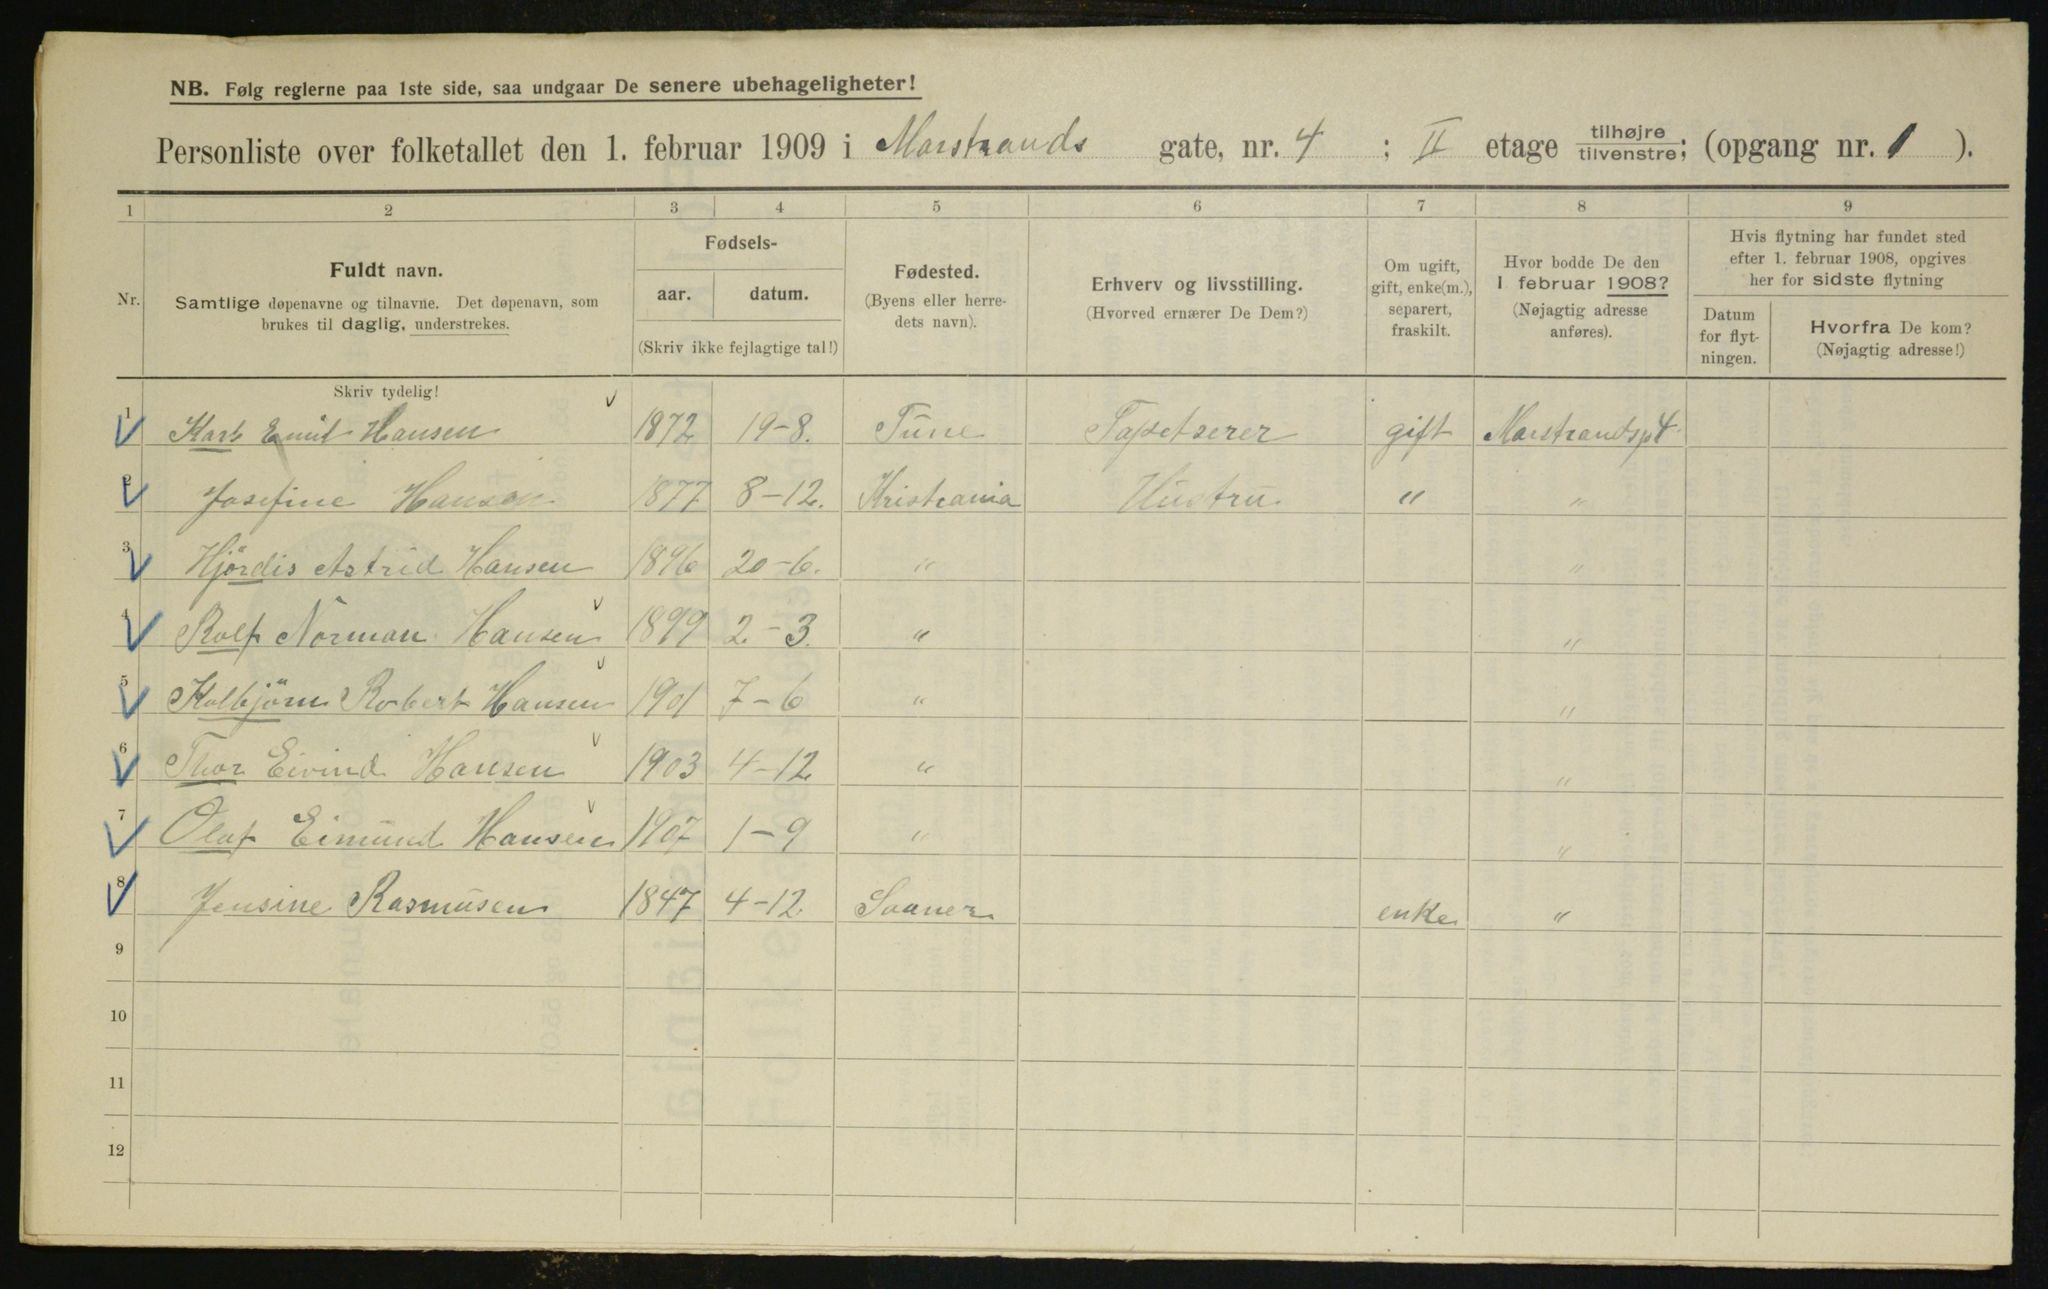 NB. Følg reglerne paa 1ste side, saa undgaar De senere ubehageligheter!
Personliste over folketallet den 1. februar 1909 i Marstrands gate, nr. 4 ; II etage tilhøjre/tilvenstre; (opgang nr. 1 ).
1 2 3 4 5 6 7 8 9
Nr.
Fuldt navn.
Samtlige døpenavne og tilnavne. Det døpenavn, som
brukes til daglig, understrekes.
Fødsels-
aar. datum.
(Skriv ikke fejlagtige tal!)
Fødested.
(Byens eller herre-
dets navn).
Erhverv og livsstilling.
(Hvorved ernærer De Dem?)
Om ugift,
gift, enke(m.),
separert,
fraskilt.
Hvor bodde De den
1 februar 1908?
(Nøjagtig adresse
anføres).
Hvis flytning har fundet sted
efter 1. februar 1908, opgives
her for sidste flytning
Datum
for flyt-
ningen.
Hvorfra De kom?
(Nøjagtig adresse!)
Skriv tydelig!
1 Karl Emil Hansen 1872 19-8. Tune Tapetserer gift Marstrandsg 4
2 Josefine Hansen 1877 8-12. Kristiania Hustru " "
3 Hjördis Astrid Hansen 1896 20-6. " "
4 Rolf Norman Hansen 1899 2-3. " "
5 Kolbjörn Robert Hansen 1901 7-6 " "
6 Thor Eivind Hansen 1903 4-12 " "
7 Olaf Eimund Hansen 1907 1-9 " "
8 Jensine Rasmusen 1847 4-12 Saaner enke "
9
10
11
12